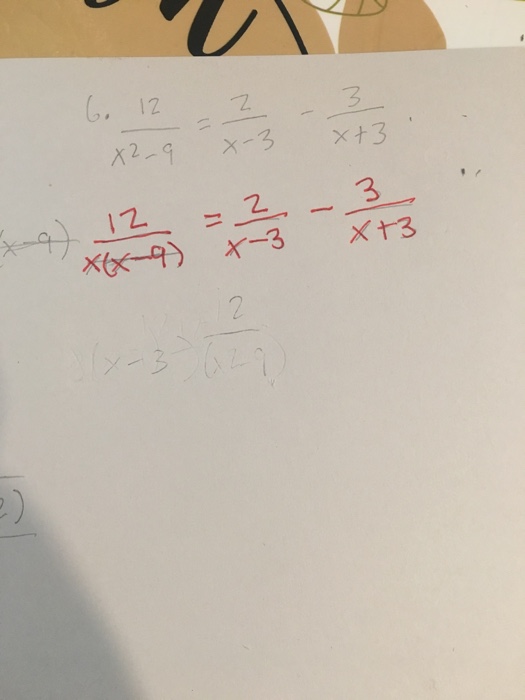 6. 12/(x²-9) = 2/(x-3) - 3/(x+3)
(x-9) 12/(x(x-9)) = 2/(x-3) - 3/(x+3)
12
(x-3)
2)